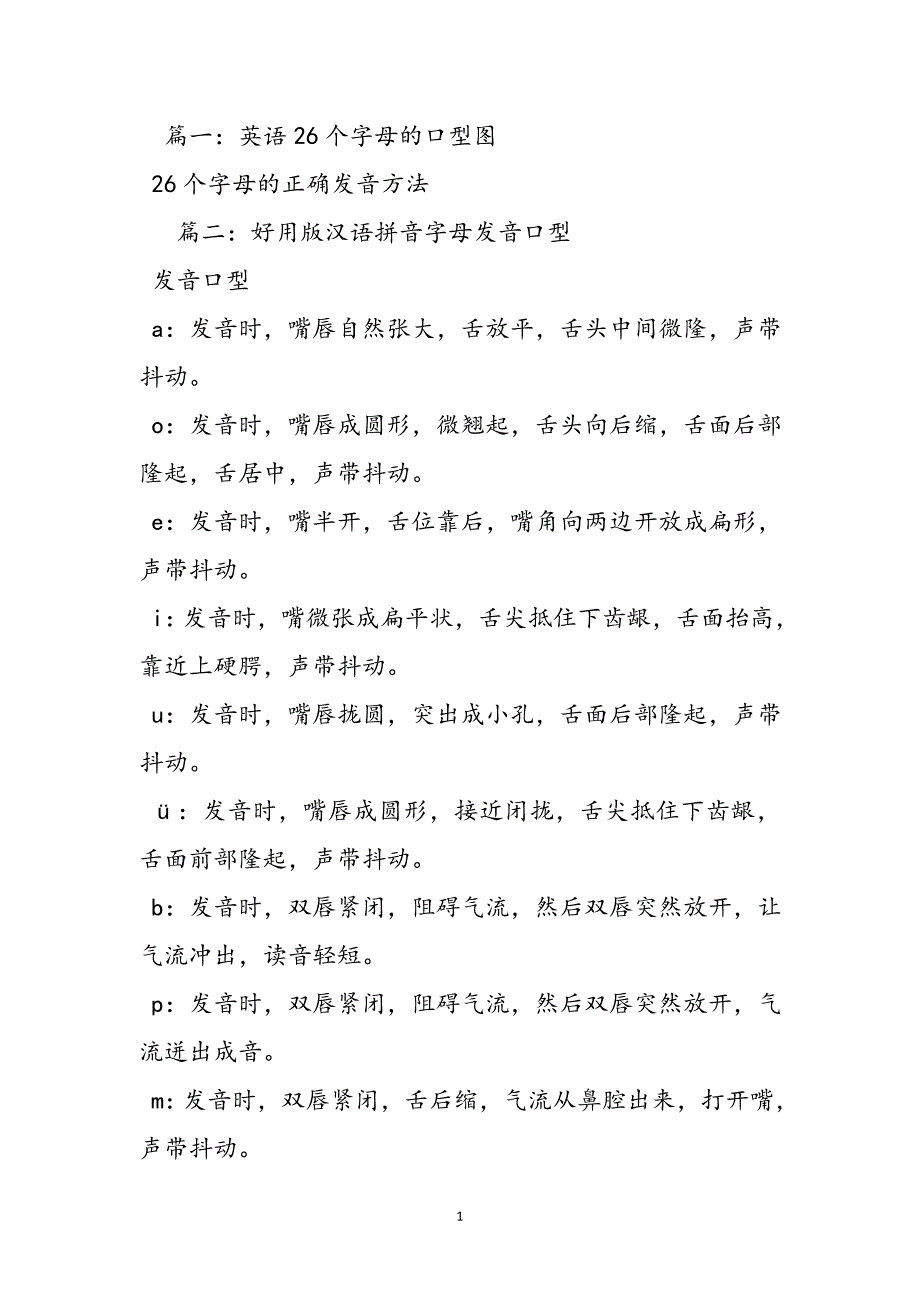 篇一：英语26个字母的口型图
26个字母的正确发音方法
篇二：好用版汉语拼音字母发音口型
发音口型
a：发音时，嘴唇自然张大，舌放平，舌头中间微隆，声带
抖动。
o：发音时，嘴唇成圆形，微翘起，舌头向后缩，舌面后部
隆起，舌居中，声带抖动。
e：发音时，嘴半开，舌位靠后，嘴角向两边开放成扁形，
声带抖动。
i：发音时，嘴微张成扁平状，舌尖抵住下齿龈，舌面抬高，
靠近上硬腭，声带抖动。
u：发音时，嘴唇拢圆，突出成小孔，舌面后部隆起，声带
抖动。
ü：发音时，嘴唇成圆形，接近闭拢，舌尖抵住下齿龈，
舌面前部隆起，声带抖动。
b：发音时，双唇紧闭，阻碍气流，然后双唇突然放开，让
气流冲出，读音轻短。
p：发音时，双唇紧闭，阻碍气流，然后双唇突然放开，气
流迸出成音。
m：发音时，双唇紧闭，舌后缩，气流从鼻腔出来，打开嘴，
声带抖动。
1